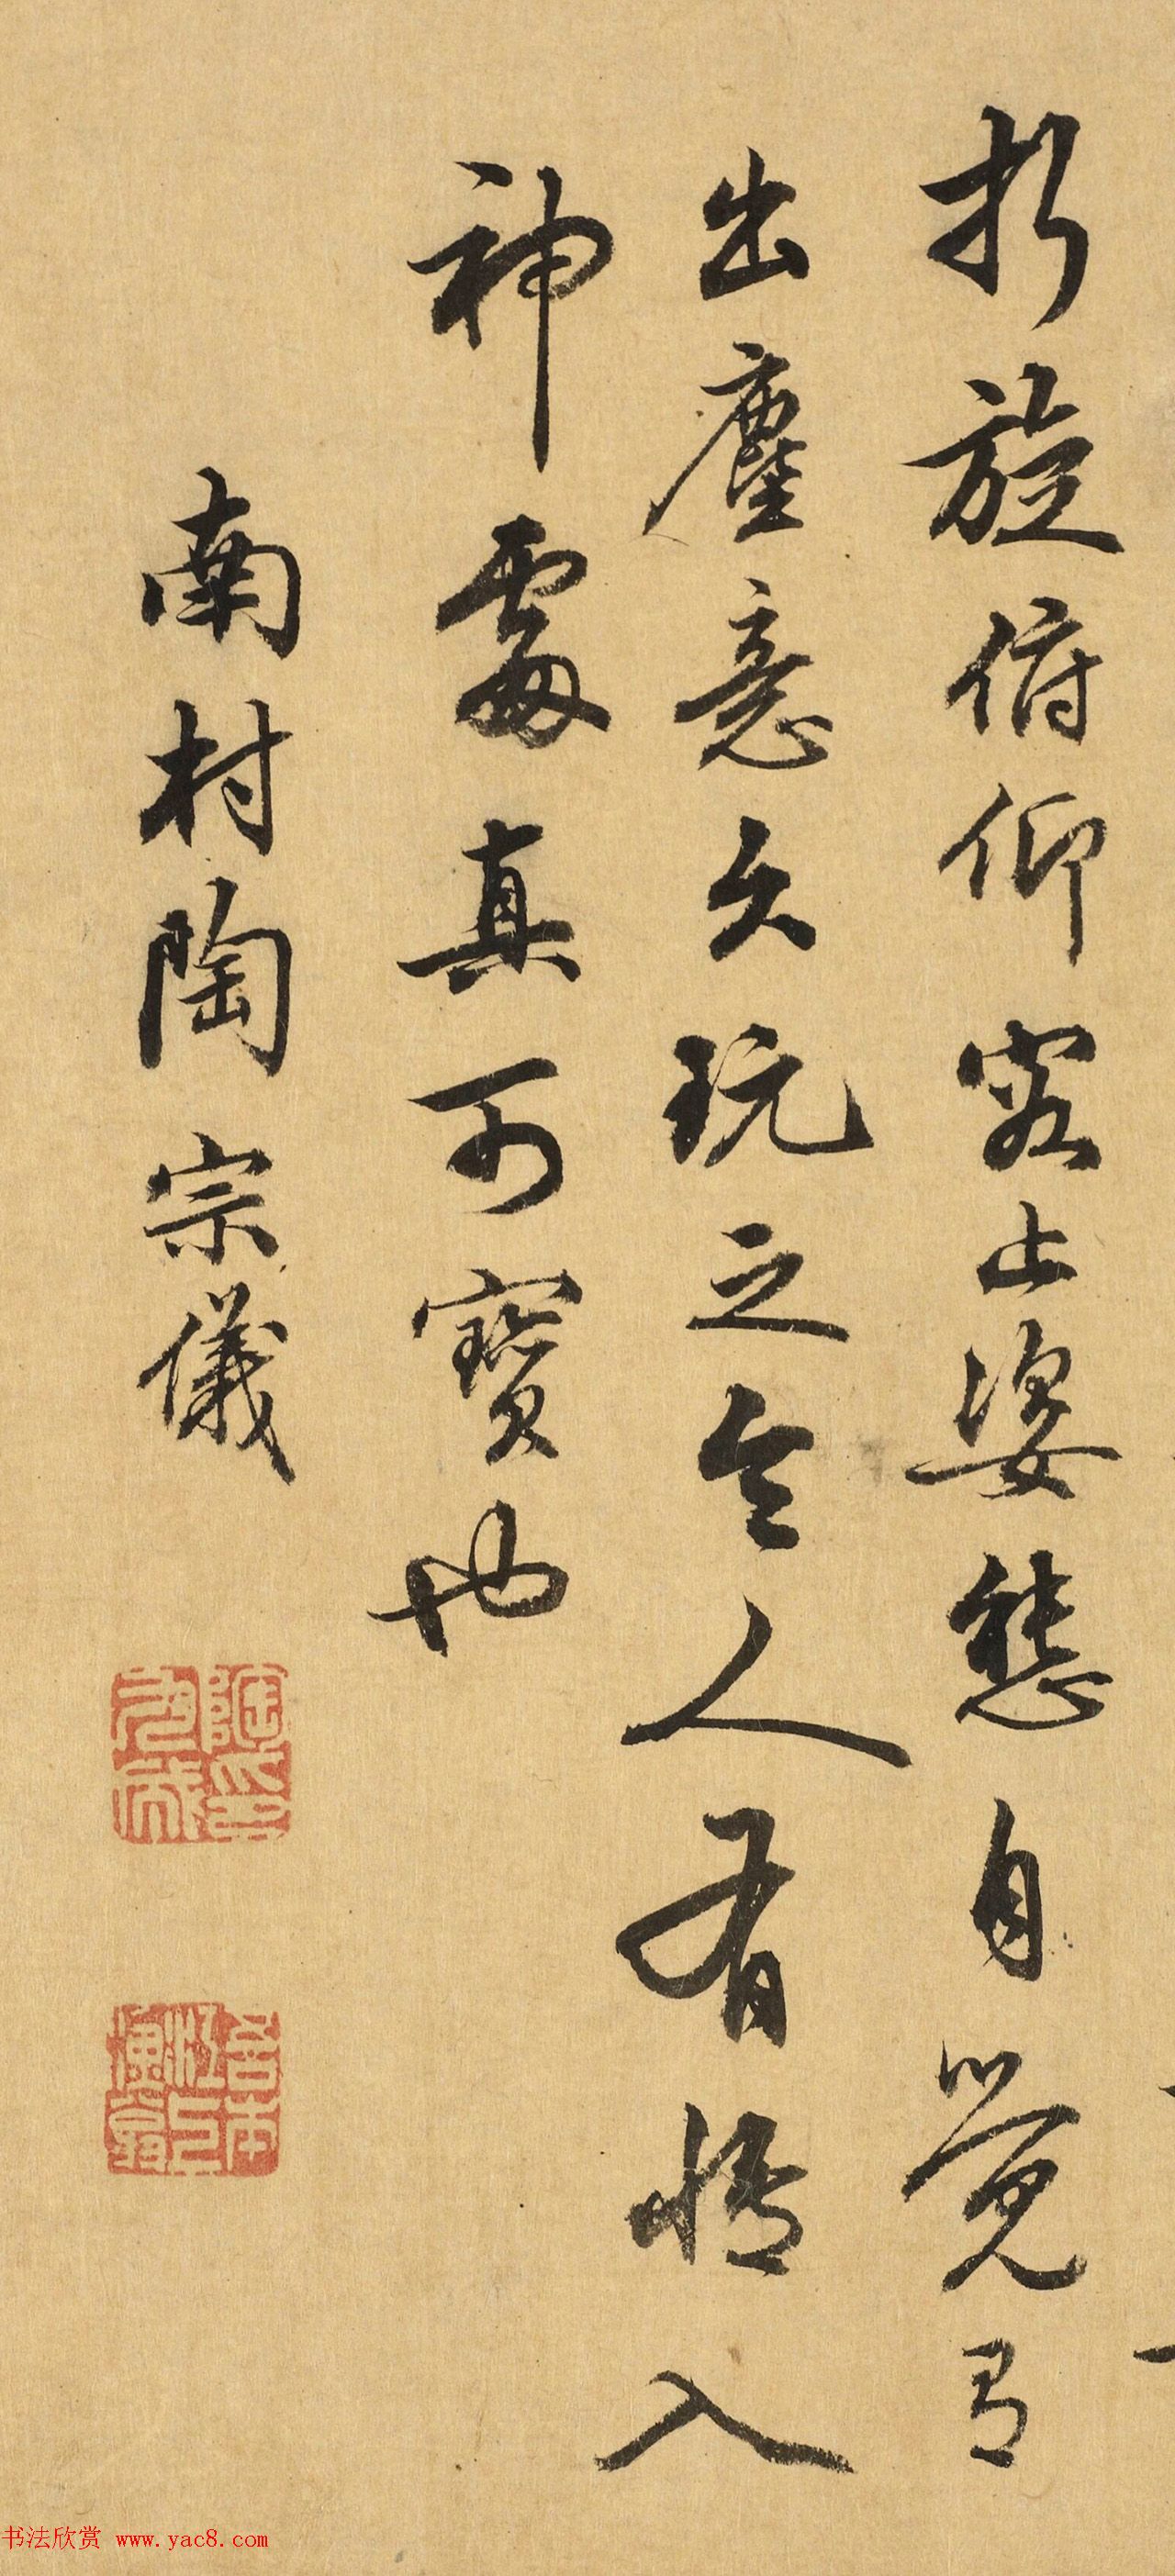 折旋俯仰容止姿態自覺有
出塵意久玩之令人有悟入
神處真可寶也
南村陶宗儀
书法欣赏 www.yac8.com